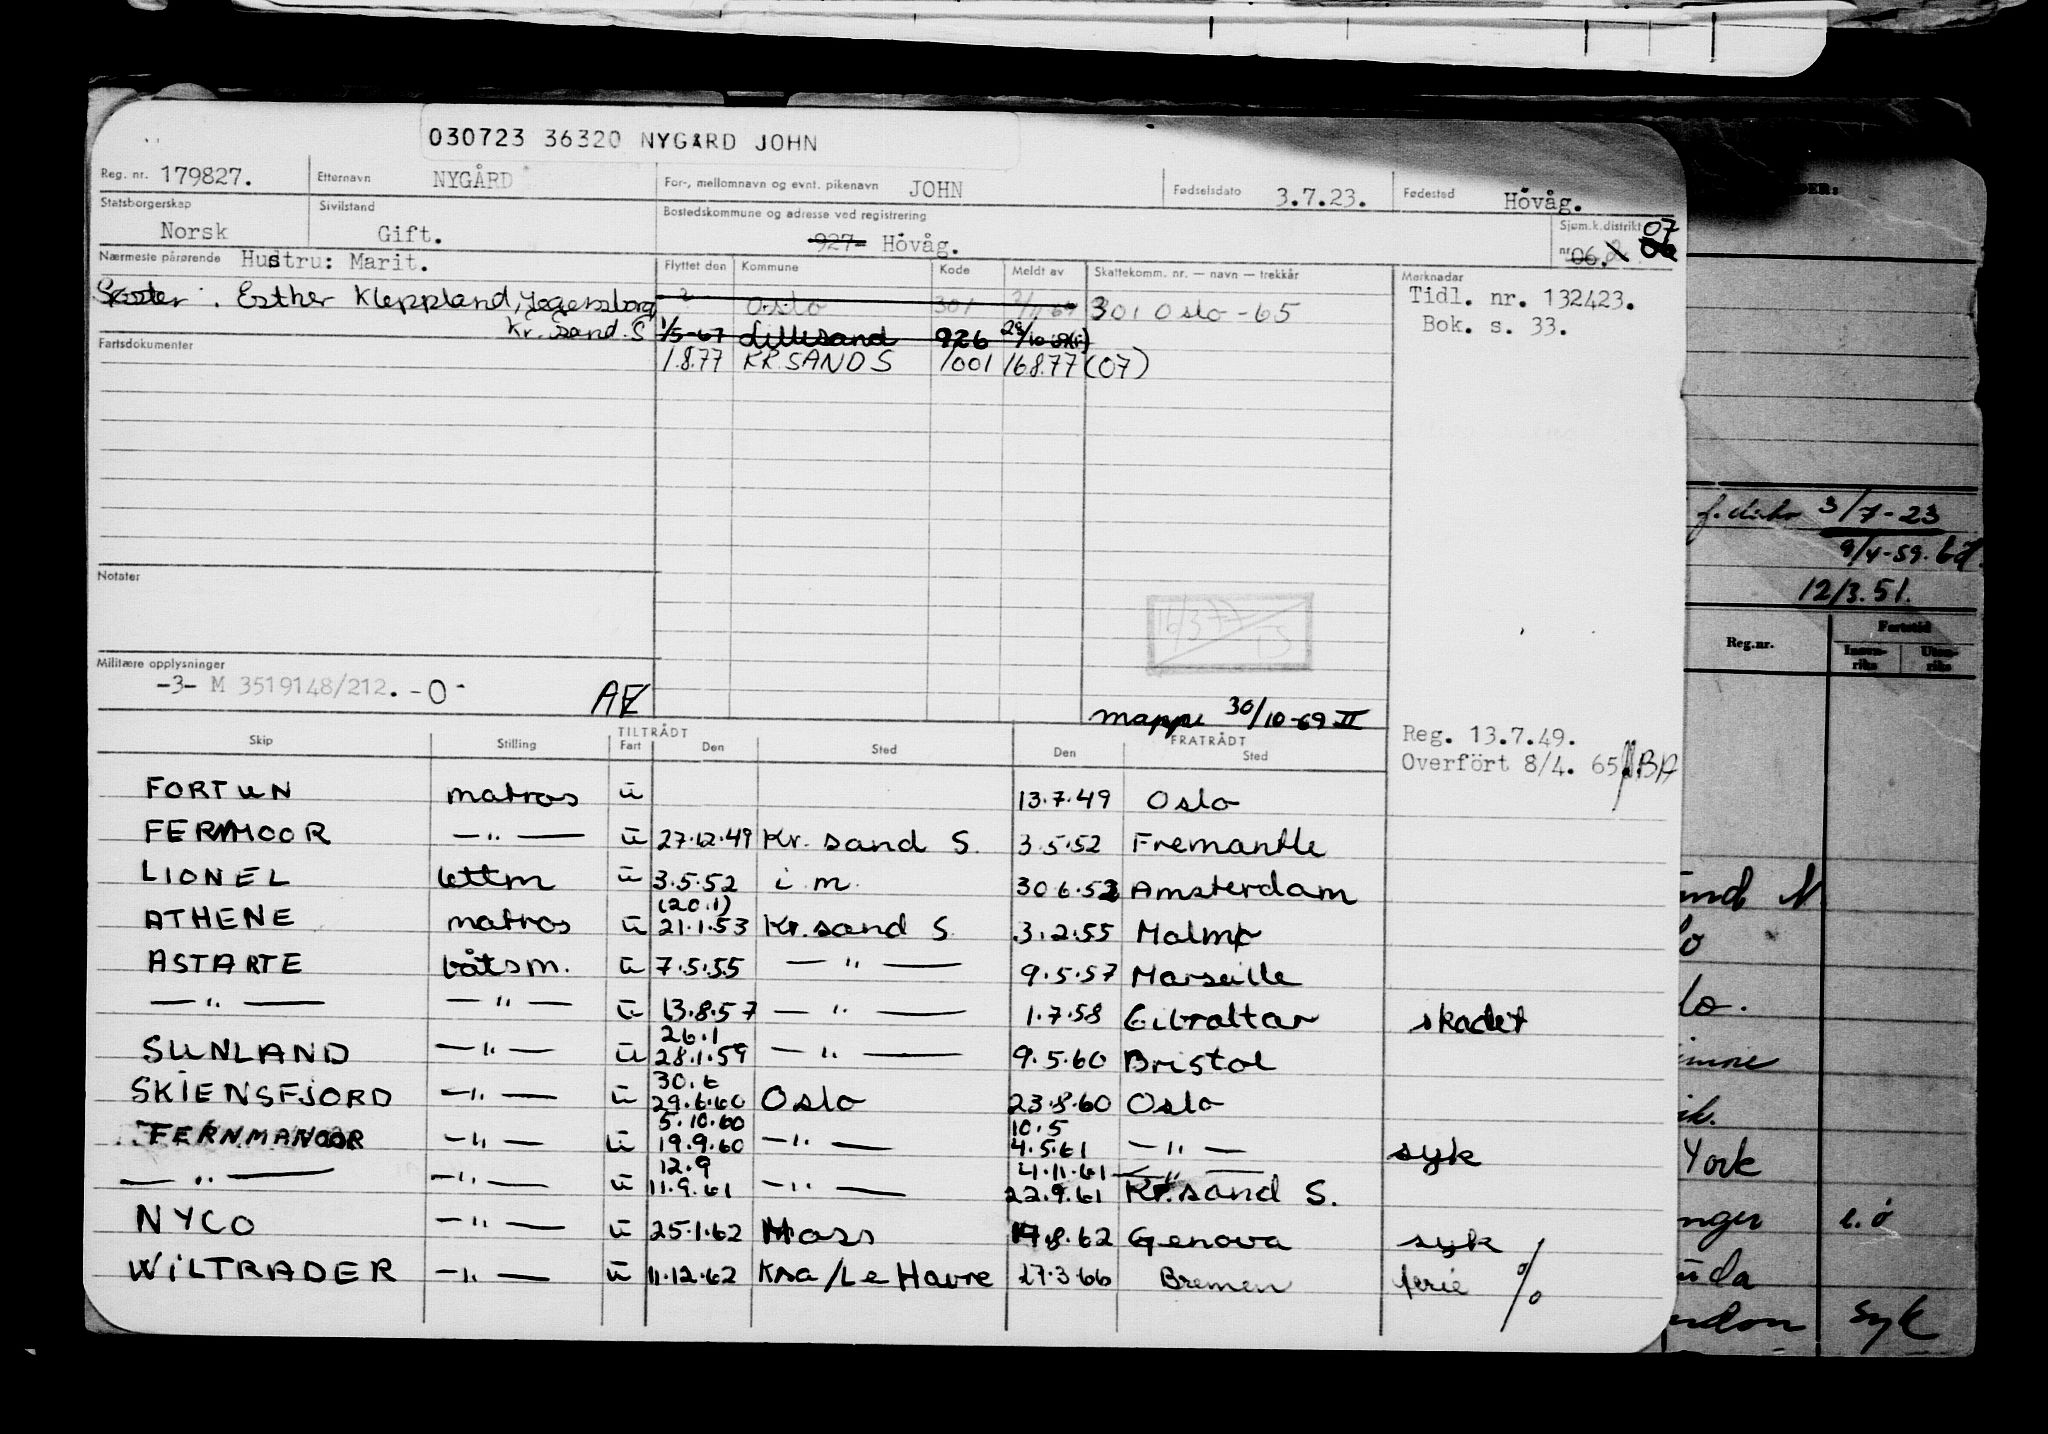 030723 36320 NYGARD JOHN
Reg. nr. 179827. Etternavn NYGÅRD For-, mellomnavn og evnt. pikenavn JOHN Fødselsdato 3.7.23. Fødested Hövåg.
Statsborgerskap Norsk Sivilstand Gift. Bostedskommune og adresse ved registrering 927- Hövåg. Sjøm.k.distrikt nr. 06. 06 07
Nærmeste pårørende Hustru: Marit. Flyttet den Kommune Kode Meldt av Skattekomm. nr. — navn — trekkår Merknader
Tidl. nr. 132423.
Søster. Esther Kleppland, Jegersborg Oslo 301 301 Oslo - 65
Bok. s. 33.
Kr. Sand. S 1/5-67 Lillesand 926
Fartsdokumenter 1.8.77 KR. SAND S 1001 16877 (07)
Notater
Militære opplysninger
-3- M 3519148/212. -0- AE
mappe 30/10-69 II
Reg. 13.7.49.
Overfört 8/4. 65 BA
Skip Stilling TILTRÅDT Fart Den Sted FRATRÅDT Den Sted
FORTUN matros u 13.7.49 Oslo
FERNMOOR — " — u 27.12.49 Kr. sand S. 3.5.52 Fremantle
LIONEL lettm u 3.5.52 i. m. 30 6.52 Amsterdam
(20.1)
ATHENE matros u 21.1.53 Kr. sand S. 3.2.55 Malmø
ASTARTE båtsm. u 7.5.55 — " — 9.5.57 Marseille
— " — — " — u 13.8.57 — " — 1.7.58 Gibraltar skadet
26.1
SUNLAND — " — u 28.1.59 — " — 9.5.60 Bristol
30.6
SKIENSFJORD — " — u 29.6.60 Oslo 23.8.60 Oslo
5.10.60 10.5
FERNMANOR — " — u 19.9.60 — " — 4.5.61 — " — syk
12.9 4.11.61 — " —
— " — — " — u 11.9.61 — " — 22.9.61 Kr. sand S.
NYCO — " — u 25.1.62 Moss 17.8.62 Genova syk
WILTRADER — " — u 11.12.62 Kra/Le Havre 27.3 66 Bremen ferie %
3/7-23
9/4-59.
12/3.51.
Reg.nr. Fartstid
Innen-riks Uten-riks
York
syk